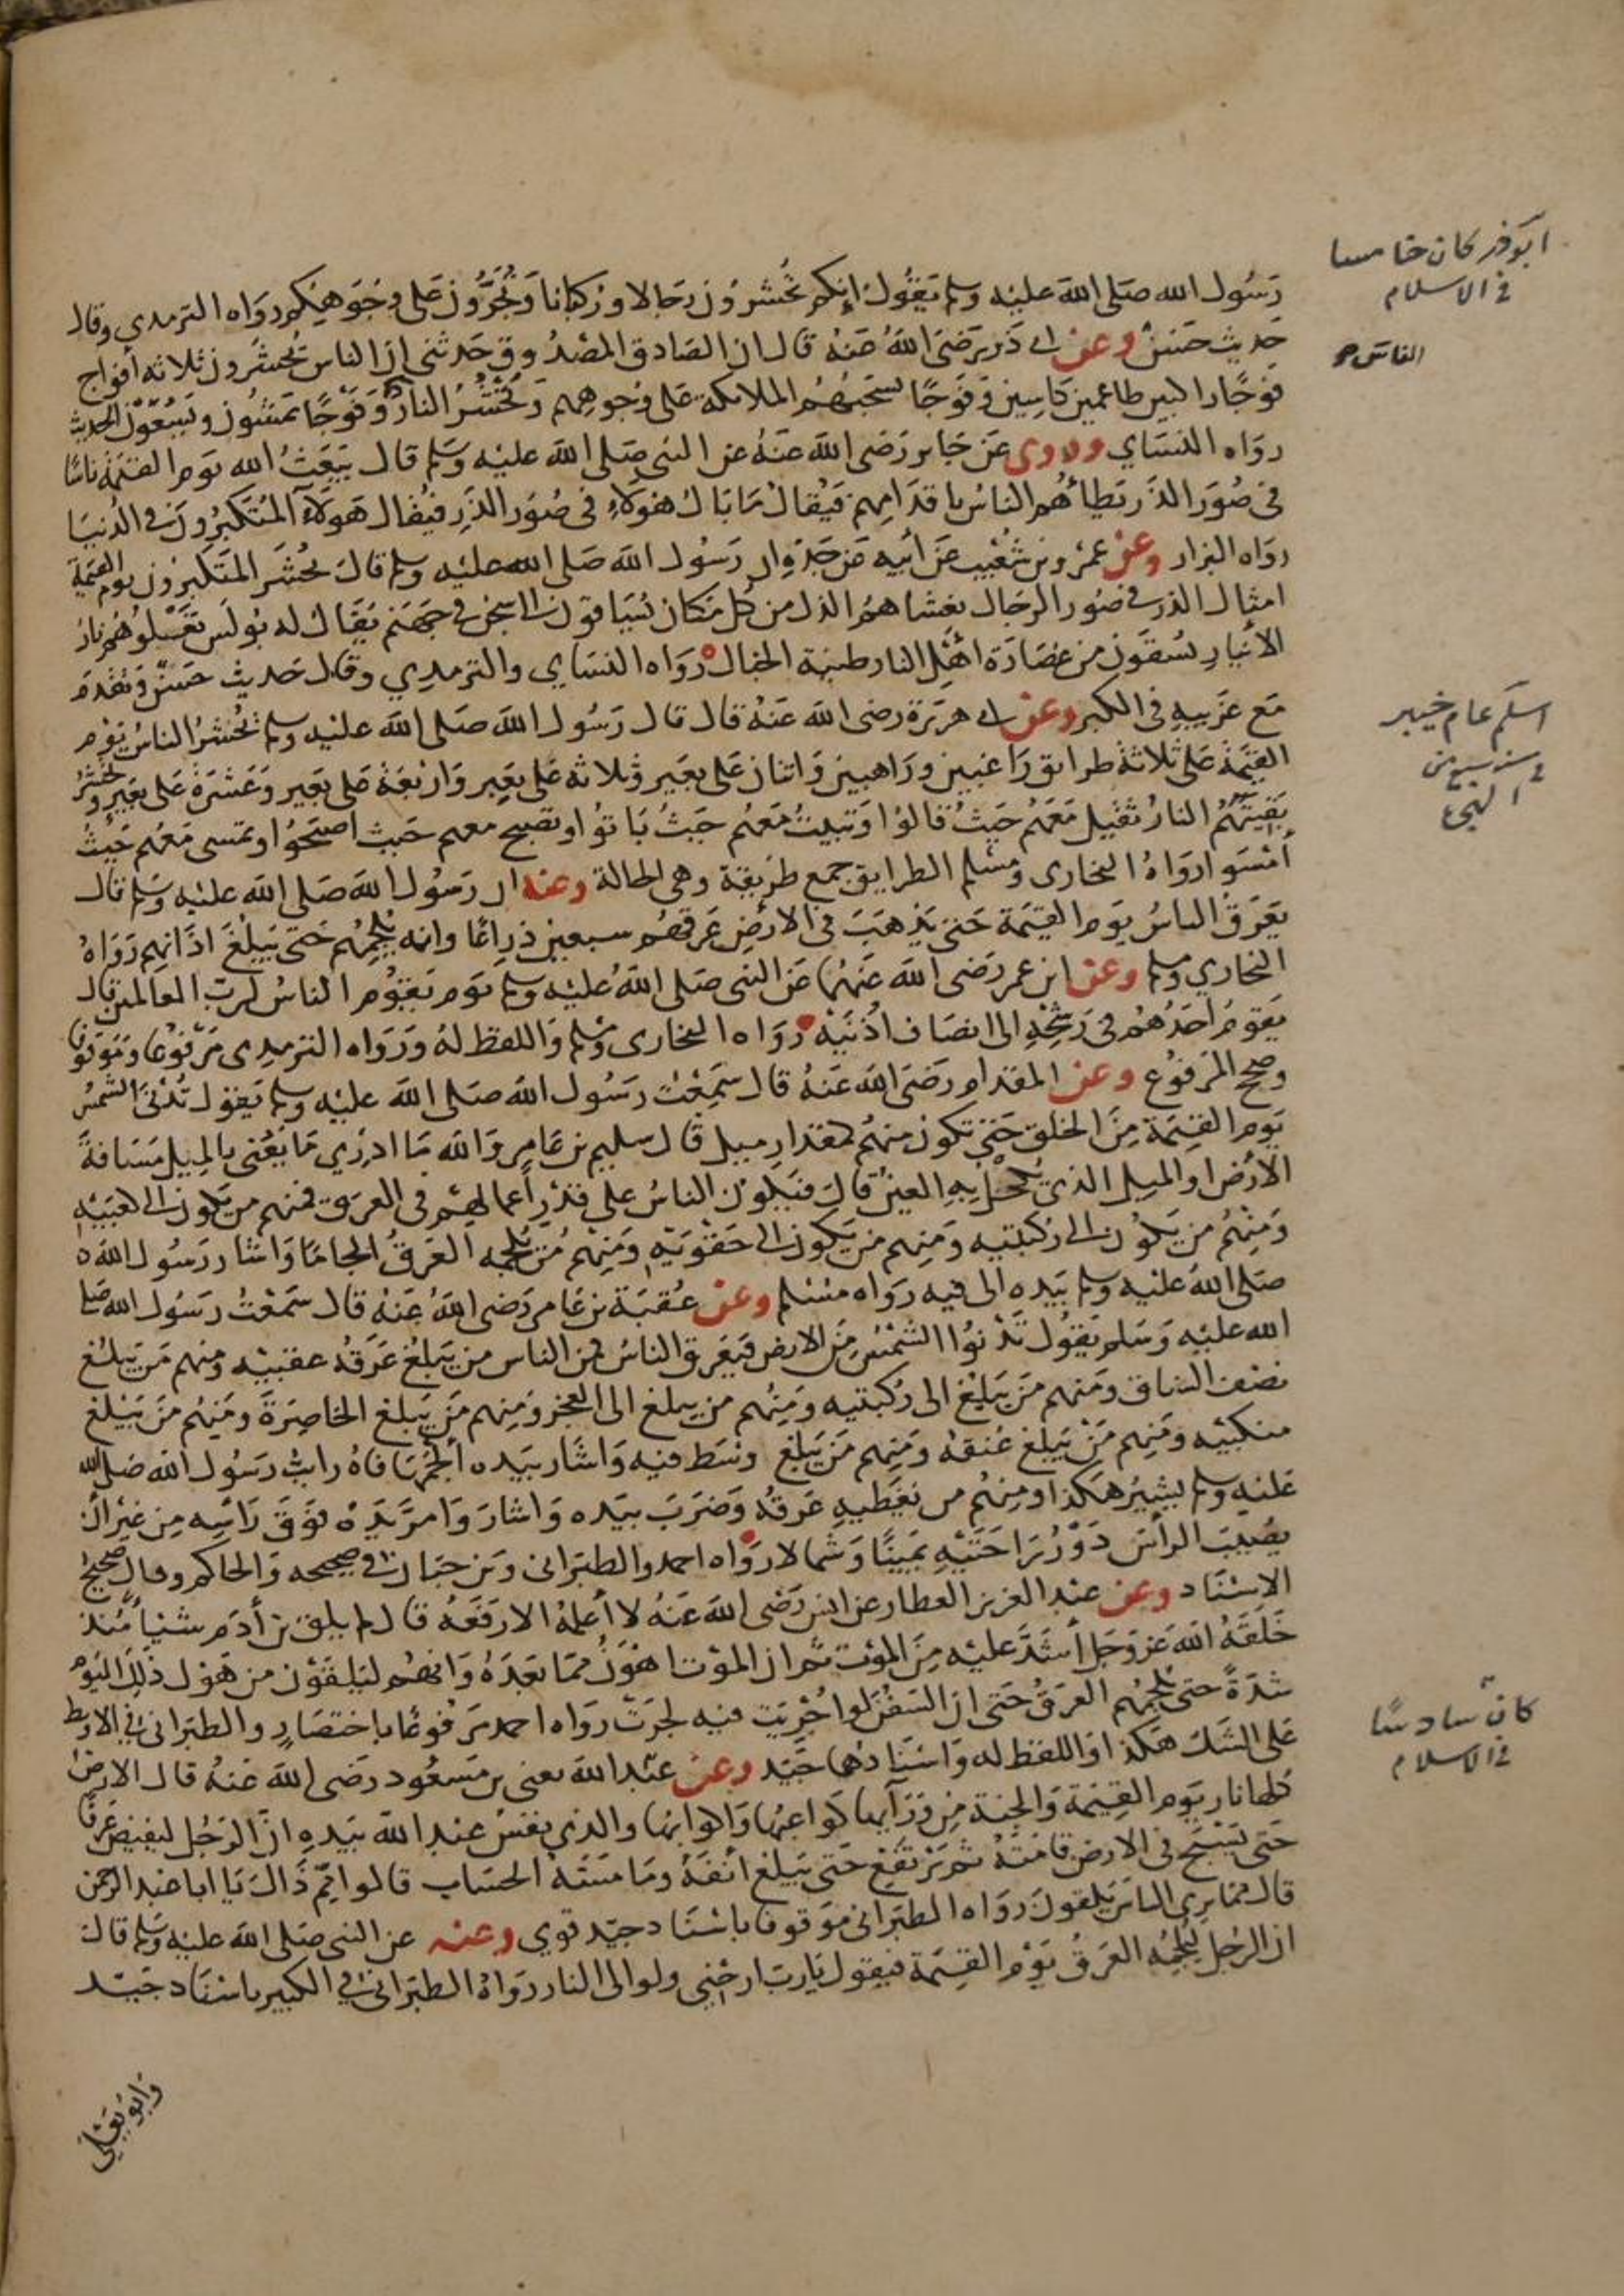 رَسُول الله صَلى الله عليْه وسلم يَقُول إنكم تُحْشرُون رجَالا وركبانا وَتُجَرُّون على وُجُوهِكم رواه الترمدي وقال
حَديث حَسَنٌ وعن ابي ذَر رَضيَ اللهُ عَنهُ قال ان الصَادق المصْدُوق حَدثني ان الناس يحْشَرُون ثلاثه أفواج
فَوجًا راكبين طاعمين كاسِين وَفَوجًا تسحَبُهُم الملائكة على وُجُوهِهم وَتَحْشُرُ النارُ وَفَوْجًا يمشُون وَيَسْعَوْن الحديث
روَاه النسَاي وروى عَن جَابر رَضي الله عَنهُ عن النبي صَلى الله عليْه وسَلم قال يَبعَثُ الله يوم القيٰمة ناسًا
في صُوَر الذَر يَطأُهُم الناسُ باقدَامِهم فيُقال مَا بَال هؤلاءِ في صُوَر الذَرِ فيُقال هَولَآءِ المُتَكبِّرُون في الدُنيَا
روَاه البزار وعن عمْرو بن شُعَيب عَن أبيه عَن جَدّه ان رَسُول الله صَلى الله عليْه وسلم قالَ يُحْشَر المتَكبرُون يوم القيٰمة
امثال الذر في صُور الرجَال يغشاهُمُ الذل من كُل مَكان يُسَاقون الى سجن في جَهنم يُقَال له بُولَس تَعْلُوهُم نارُ
الأنيار يُسْقَون من عُصَارَة اهْل النار طينة الخبال روَاه النسَاي والترمدِي وقال حَديث حَسَنٌ وَتقدمَ
مَع غريبه في الكبر وعن ابي هريرَة رضي الله عَنهُ قال قال رَسُول الله صَلى الله عليْه وسلم يُحْشرُ الناسُ يَوْم
القيٰمة عَلى ثلاثة طرائق رَاغبين ورَاهبين وَاثنان عَلى بعَير وثلاثه على بَعِير وَارْبعَة على بعِير وَعَشرَة عَلى بعَيرٍ وتَحشُر
بَقيتَهُم النارُ تَقيل مَعَهُم حَيثُ قالوُا وَتبيتُ مَعَهُم حَيثُ بَاتُوا وتصبح معهم حَيث اصبَحُوا وتمسى مَعَهُم حَيثُ
أمْسَوا روَاهُ البخارى ومسْلم الطرايق جمع طريقة وهى الحالة وعنه ان رَسُول الله صَلى الله عليْه وسَلم قال
يَعْرَق الناسُ يوم القيٰمة حَتى يَذهَبَ في الأرْضِ عَرقهُم سبعين ذِراعًا وانه يُلجِمُهم حَتى يَبلغَ اذَانهم رَوَاهُ
البخاري ومسلم وعن ابن عمر رَضى الله عَنهُما عَن النبي صَلى اللهُ عليْه وسلم يَوم يَقُوم الناسُ لربِّ العالمين قال
يَقوم أحَدُهُم في رَشْحِهِ الى انصَاف أذُنيْه روَاه البخارى ومسلم وَاللفظ لهُ ورَواه الترمِدي مَرفُوعًا ومَوقوفًا
وصحح المرفوُع وعن المقدام رَضيَ الله عَنهُ قال سَمِعْتُ رَسُول الله صَلى الله عليْه وسلم يَقول تُدْنىَ الشَمسُ
يَوم القِيٰمة مِنَ الخلق حَتى تكون منهُم كمقدارِ مِيل قال سليم بن عَامر وَالله مَا ادْرِي مَا يَعْني بالمِيل مَسَافة
الأرْض او الميل الذي تُكحَل به العين قال فيَكون الناسُ على قَدْر أعمالِهم في العرَق فمنهم من يكون الى كعبَيْهِ
وَمِنهُم من يَكُون الى رُكبتيه وَمِنهم من يَكون الى حَقوَيْهِ وَمِنهم مَّن يُلجمه العَرقُ إلجامًا وَاشار رَسُول الله
صَلى اللهُ عليْه وسلم بَيده الى فيه روَاه مسْلم وعن عُقبَة بن عَامر رَضى اللهُ عَنهُ قال سَمعْتُ رَسُول الله صَلى
الله عليْه وَسَلم يَقُول تَدْنوُا الشمْسُ مِنَ الارض فيَعْرق الناسُ فمن الناس من يَبلغ عَرَقُه عقبيْه ومنهم مَن يَبلُغ
نصْفَ الساق ومَنهم مَن يَبلغ الى رُكبَتيه وَمِنهُم من يبلغ الى العجز ومِنهم مَن يَبلغ الخاصِرَة وَمِنهُم مَن يَبلغ
منكبَيْه وَمِنهم مَن يَبلغ عُنقهُ وَمِنهم مَن يَبلغ وسَط فيه وَاشار بيَده ألْجَمَهَا فاهُ رايتُ رَسُول الله صَلى الله
عليْه وسلم يشيرُ هكذا ومِنهُم من يغَطيه عَرقُهُ وَضرَبَ بيَده وَاشارَ وَامرَّ يَدهُ فَوقَ رَأسِه مِن غير أن
يُصيبَ الرأسَ دَوَّرَ رَاحَتَيْهِ يَمينًا وَشمالا روَاه احمد والطبَراني وبن حبان في صحيحه وَالحاكم وقال صحيحُ
الاسْنَاد وعن عبْد العزيز العطار عن انس رَضى الله عَنهُ لا أعلمُهُ الا رَفعَهُ قال لم يلق بن أدَم شيئا مُنذ
خَلَقهُ الله عَز وَجَل أشَدّ عليْه مِنَ الموْت ثم ان الموْت اهْوَنُ ممّا بَعدَهُ وَانهُم ليَلقوْن من هَوْل ذَلِكَ اليَوْم
شدَةً حتى يُلجمُهم العَرقُ حَتى ان السَفُن لو أُجْرِيَت فيه لجرَتْ روَاه احمد مَرفُوعًا باختصَارٍ والطبراني في الاوسط
عَلى الشَك هَكذا وَاللفظ له وَاسنَادهُما جَيّد وعن عبْد الله يعني بن مَسعُود رضَى الله عَنهُ قال الارضُ
كلها نار يَوم القيٰمة وَالجَنة مِن وَرَآيها كواعبُها وَاكوابُها والذي نفسُ عَبد الله بيَدِه ان الرَجُل ليفيض عَرقًا
حَتى يَسْبح في الارض قامَتهُ ثم يَرتفع حَتى يَبلغ أنفَهُ وَمَا مسَّهُ الحسَاب قالوا مِمّ ذَاك يَا ابا عبد الرحمن
قال ممّا يرى الناسُ يَلقون روَاه الطبَراني مَوقوفا باسْنَاد جيّد قوي وعنه عن النبي صَلى الله عليْه وسَلم قال
ان الرَجل ليُلجمُه العَرقُ يَوْم القيٰمة فيقول يَارب ارحْني ولو الى النار روَاهُ الطبَراني في الكبير باسنَاد جَيّد
وَابُو يَعْلى
ابَوذر كان خامسا
في الاسلام
اسلم عام خيبر
سنة سبع من
الهجرة
كانَ سادسًا
في الاسلام